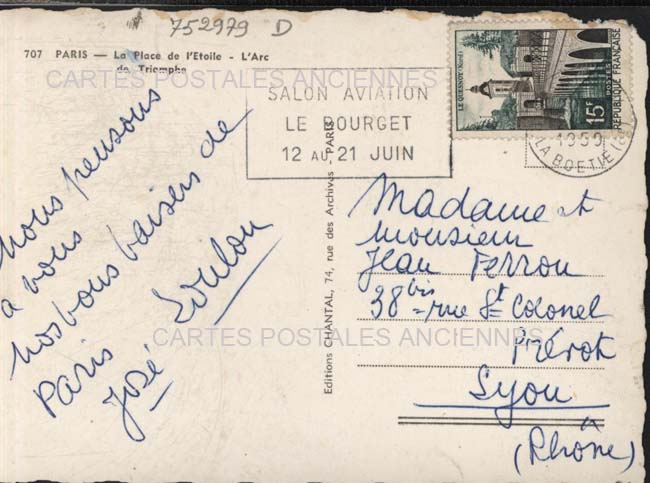 752979 D
707 PARIS — La Place de l'Etoile - L'Arc
de Triomphe
CARTES POSTALES ANCIENNES
SALON AVIATION
LE BOURGET
12 AU 21 JUIN
LE QUESNOY (Nord)
15F
POSTES
REPUBLIQUE FRANÇAISE
1959
LA BOETIE (8
nous pensons
à vous
nos bons baisers de
Paris
José Loulou
Editions CHANTAL, 74, rue des Archives - PARIS
Madame et
monsieur
Jean Perrou
38 bis rue St Colonel
Prévot
Lyon
(Rhône)
CARTES POSTALES ANCIENNES